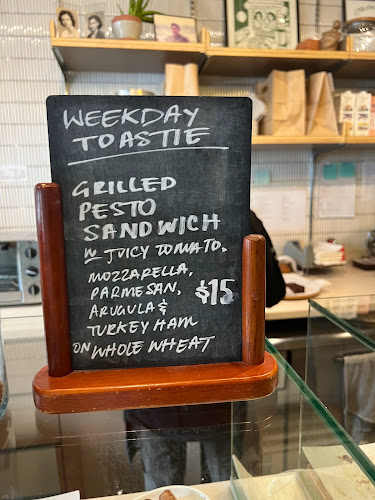 WEEKDAY
TOASTIE
GRILLED
PESTO
SANDWICH
W JUICY TOMATO,
MOZZARELLA,
PARMESAN, $15
ARUGULA &
TURKEY HAM
ON WHOLE WHEAT